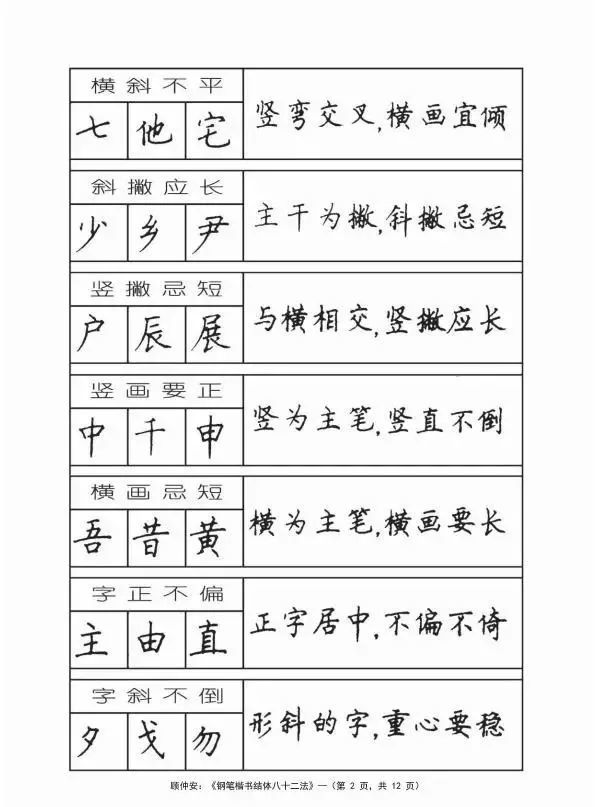 横斜不平
七他宅
竖弯交叉,横画宜倾
斜撇应长
少乡尹
主干为撇,斜撇忌短
竖撇忌短
户辰展
与横相交,竖撇应长
竖画要正
中千申
竖为主笔,竖直不倒
横画忌短
吾昔黄
横为主笔,横画要长
字正不偏
主由直
正字居中,不偏不倚
字斜不倒
夕戈勿
形斜的字,重心要稳
顾仲安:《钢笔楷书结体八十二法》—(第 2 页,共 12 页)